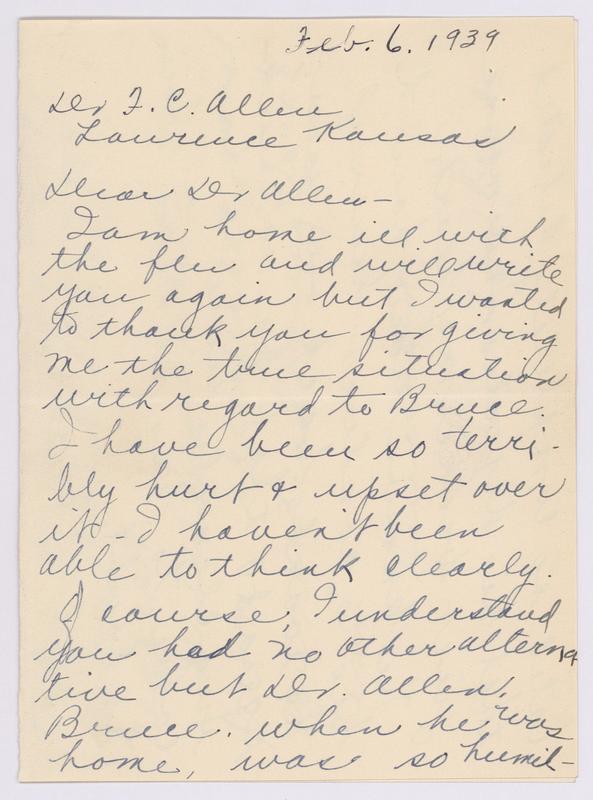 Feb. 6. 1939
Dr F. C. Allen
Lawrence Kansas
Dear Dr Allen -
I am home ill with
the flu and will write
you again but I wanted
to thank you for giving
me the true situation
with regard to Bruce.
I have been so terri-
bly hurt & upset over
it - I haven't been
able to think clearly.
Of course, I understand
you had no other alterna
tive but Dr. Allen,
Bruce. when he was
home, was so humil-